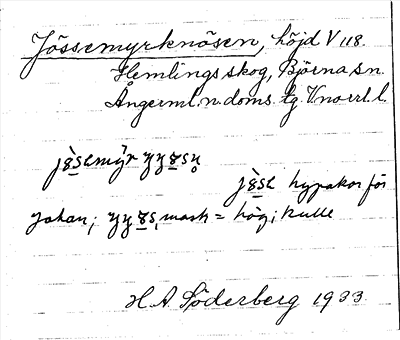 Jössemyrknösen, höjd V 118.
Hemlingsskog, Björna sn.
Ångerml. n. doms. tg. V.norrl. l.
jösse hypokor för
Johan; mask = hög, kulle
H. A. Söderberg 1933.